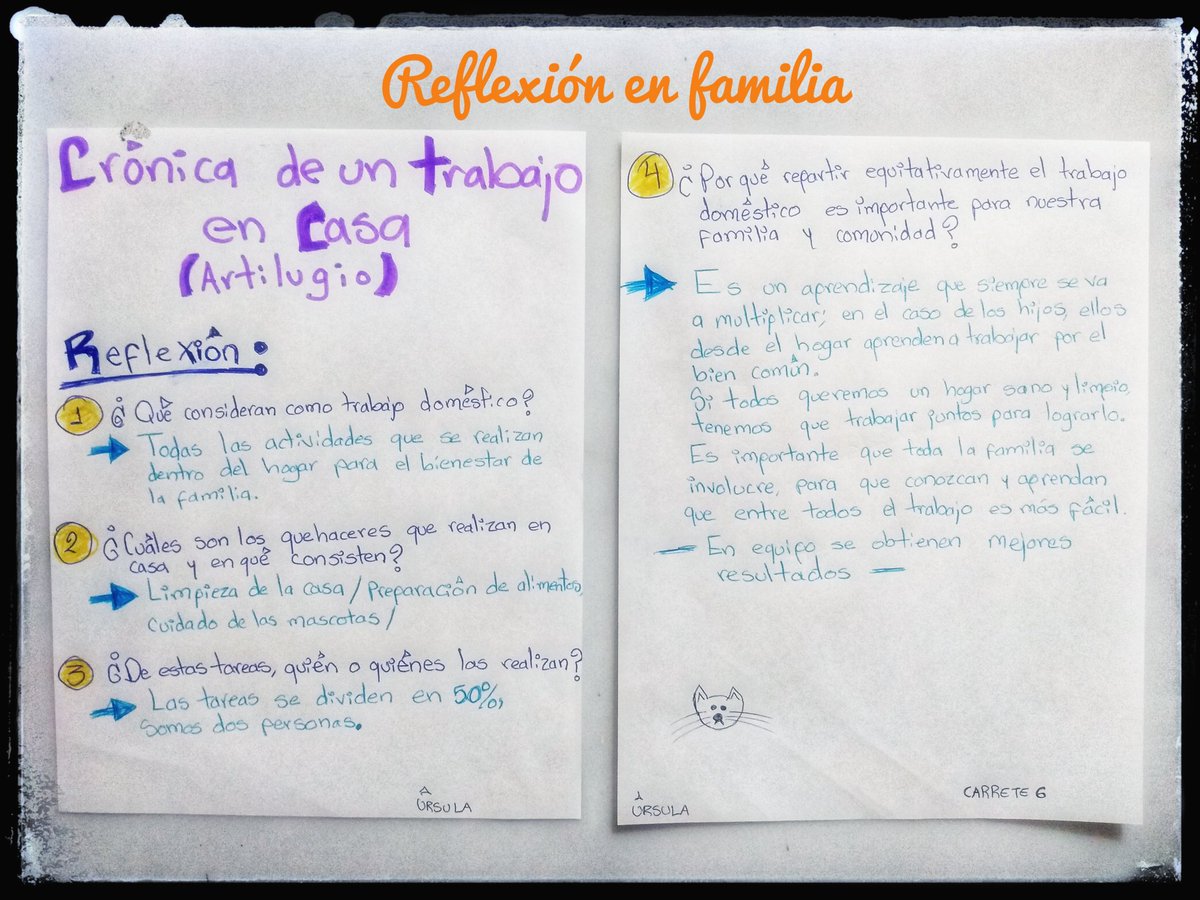 Reflexión en familia
Crónica de un trabajo
en Casa
(Artilugio)
Reflexión:
1 ¿Qué consideran como trabajo doméstico?
Todas las actividades que se realizan
dentro del hogar para el bienestar de
la familia.
2 ¿Cuáles son los quehaceres que realizan en
casa y en qué consisten?
Limpieza de la casa / Preparación de alimentos,
cuidado de las mascotas /
3 ¿De estas tareas, quién o quiénes las realizan?
Las tareas se dividen en 50%,
somos dos personas.
ÚRSULA
4 ¿Por qué repartir equitativamente el trabajo
doméstico es importante para nuestra
familia y comunidad?
Es un aprendizaje que siempre se va
a multiplicar; en el caso de los hijos, ellos
desde el hogar aprenden a trabajar por el
bien común.
Si todos queremos un hogar sano y limpio,
tenemos que trabajar juntos para lograrlo.
Es importante que toda la familia se
involucre, para que conozcan y aprendan
que entre todos el trabajo es más fácil.
— En equipo se obtienen mejores
resultados —
ÚRSULA
CARRETE 6